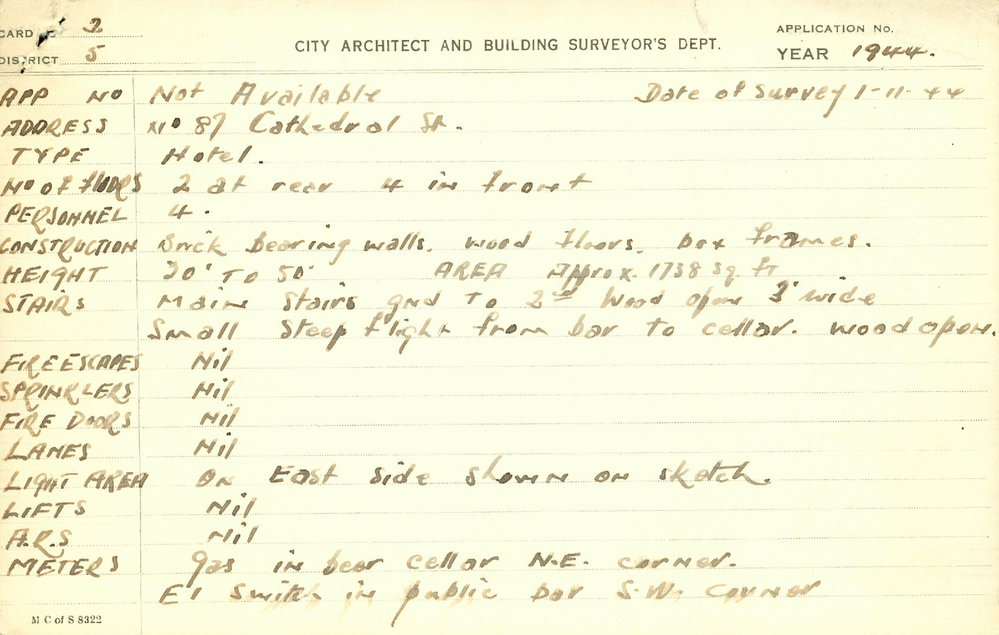 CARD No 2
DISTRICT 5
CITY ARCHITECT AND BUILDING SURVEYOR'S DEPT.
APPLICATION No.
YEAR 1944.
APP No Not Available Date of Survey 1-11-44
ADDRESS No 87 Cathedral St.
TYPE Hotel.
No OF FLOORS 2 at rear 4 in front
PERSONNEL 4.
CONSTRUCTION Brick bearing walls. wood floors. box frames.
HEIGHT 20' TO 50' AREA Approx. 1738 sq. ft
STAIRS Main Stairs gnd to 2nd Wood open 3' wide
Small Steep flight from bar to cellar. wood open.
FIRE ESCAPES Nil
SPRINKLERS Nil
FIRE DOORS Nil
LANES Nil
LIGHT AREA On East side shown on sketch.
LIFTS Nil
A.R.S Nil
METERS Gas in beer cellar N.E. corner.
El Switch in public bar S.W. Corner
M C of S 8322